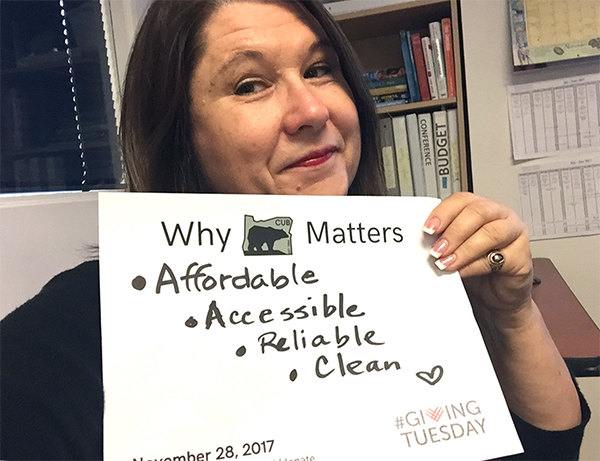 Why CUB Matters
• Affordable
• Accessible
• Reliable
• Clean ♡
#GIVING
TUESDAY
November 28, 2017
CONFERENCE
BUDGET